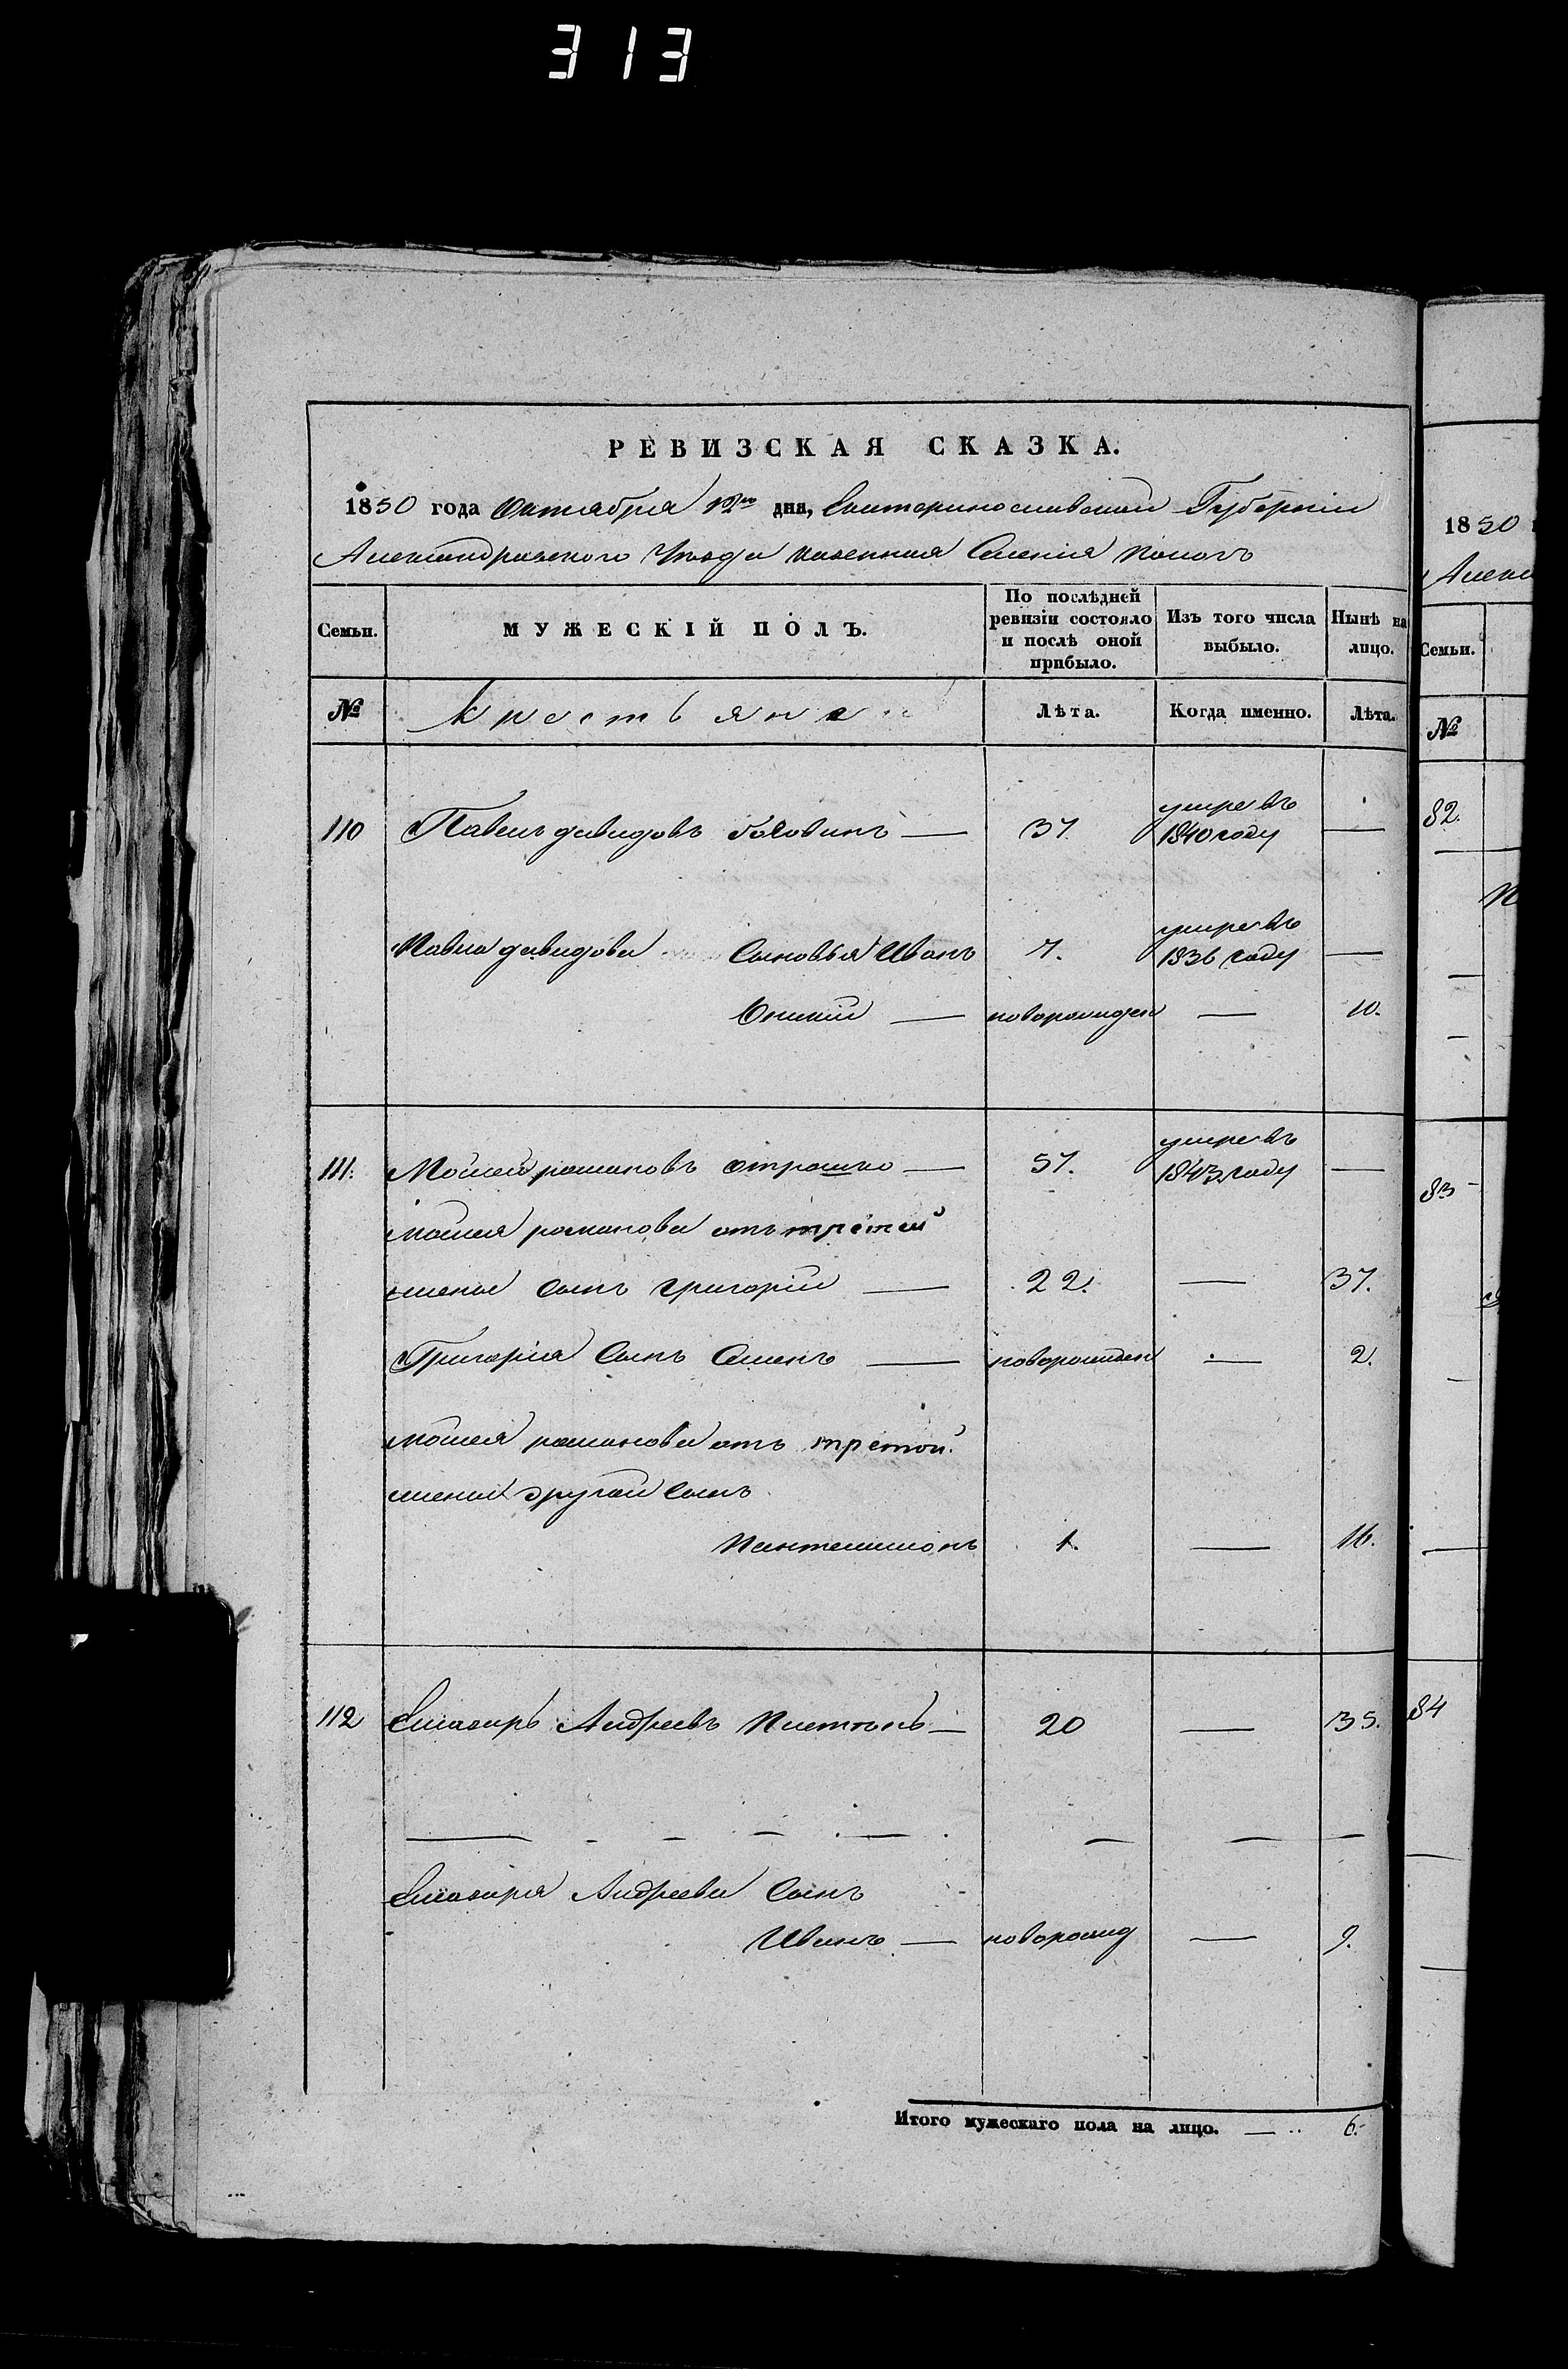 313
РЕВИЗСКАЯ СКАЗКА.
1850 года Октября 12го дня, Екатеринославской Губерніи
Александровского Уезда казенная Селенія Пологъ
Семьи.
МУЖЕСКІЙ ПОЛЪ.
По послѣдней ревизіи состояло и послѣ оной прибыло.
Изъ того числа выбыло.
Нынѣ на лицо.
№
Крестьяне
Лѣта.
Когда именно.
Лѣта.
110 Павелъ давидовъ Головинъ — 37. умре въ 1840 году —
Павла давидова Сыновья Иванъ 7. умре въ 1836 году —
— новорожден — 10.
111. Мойсей романовъ — 57. умре въ 1843 году —
мойсея романова отъ третей
жены сынъ григорій — 22. — 37.
Григорія Сынъ Семенъ — новорожден — 2.
мойсея романова отъ третой
жены другой Сынъ
Пантелимонъ 1. — 16.
112 Елизаръ Андреевъ — 20 — 35.
Елизара Андреева Сынъ
Иванъ — новорожд — 9.
Итого мужескаго пола на лицо. — 6.
1850
Алекс
Семьи.
№
82.
83
84